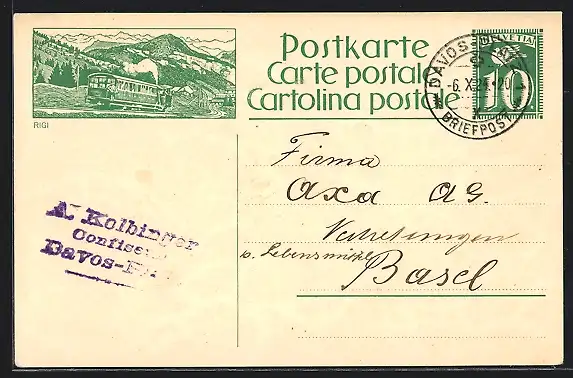 Postkarte
Carte postale
Cartolina postale
HELVETIA
10
DAVOS
BRIEFPOST
RIGI
Firma
Axa AG.
Vertretungen
Basel
A. Kolbinger
Confiserie
Davos-